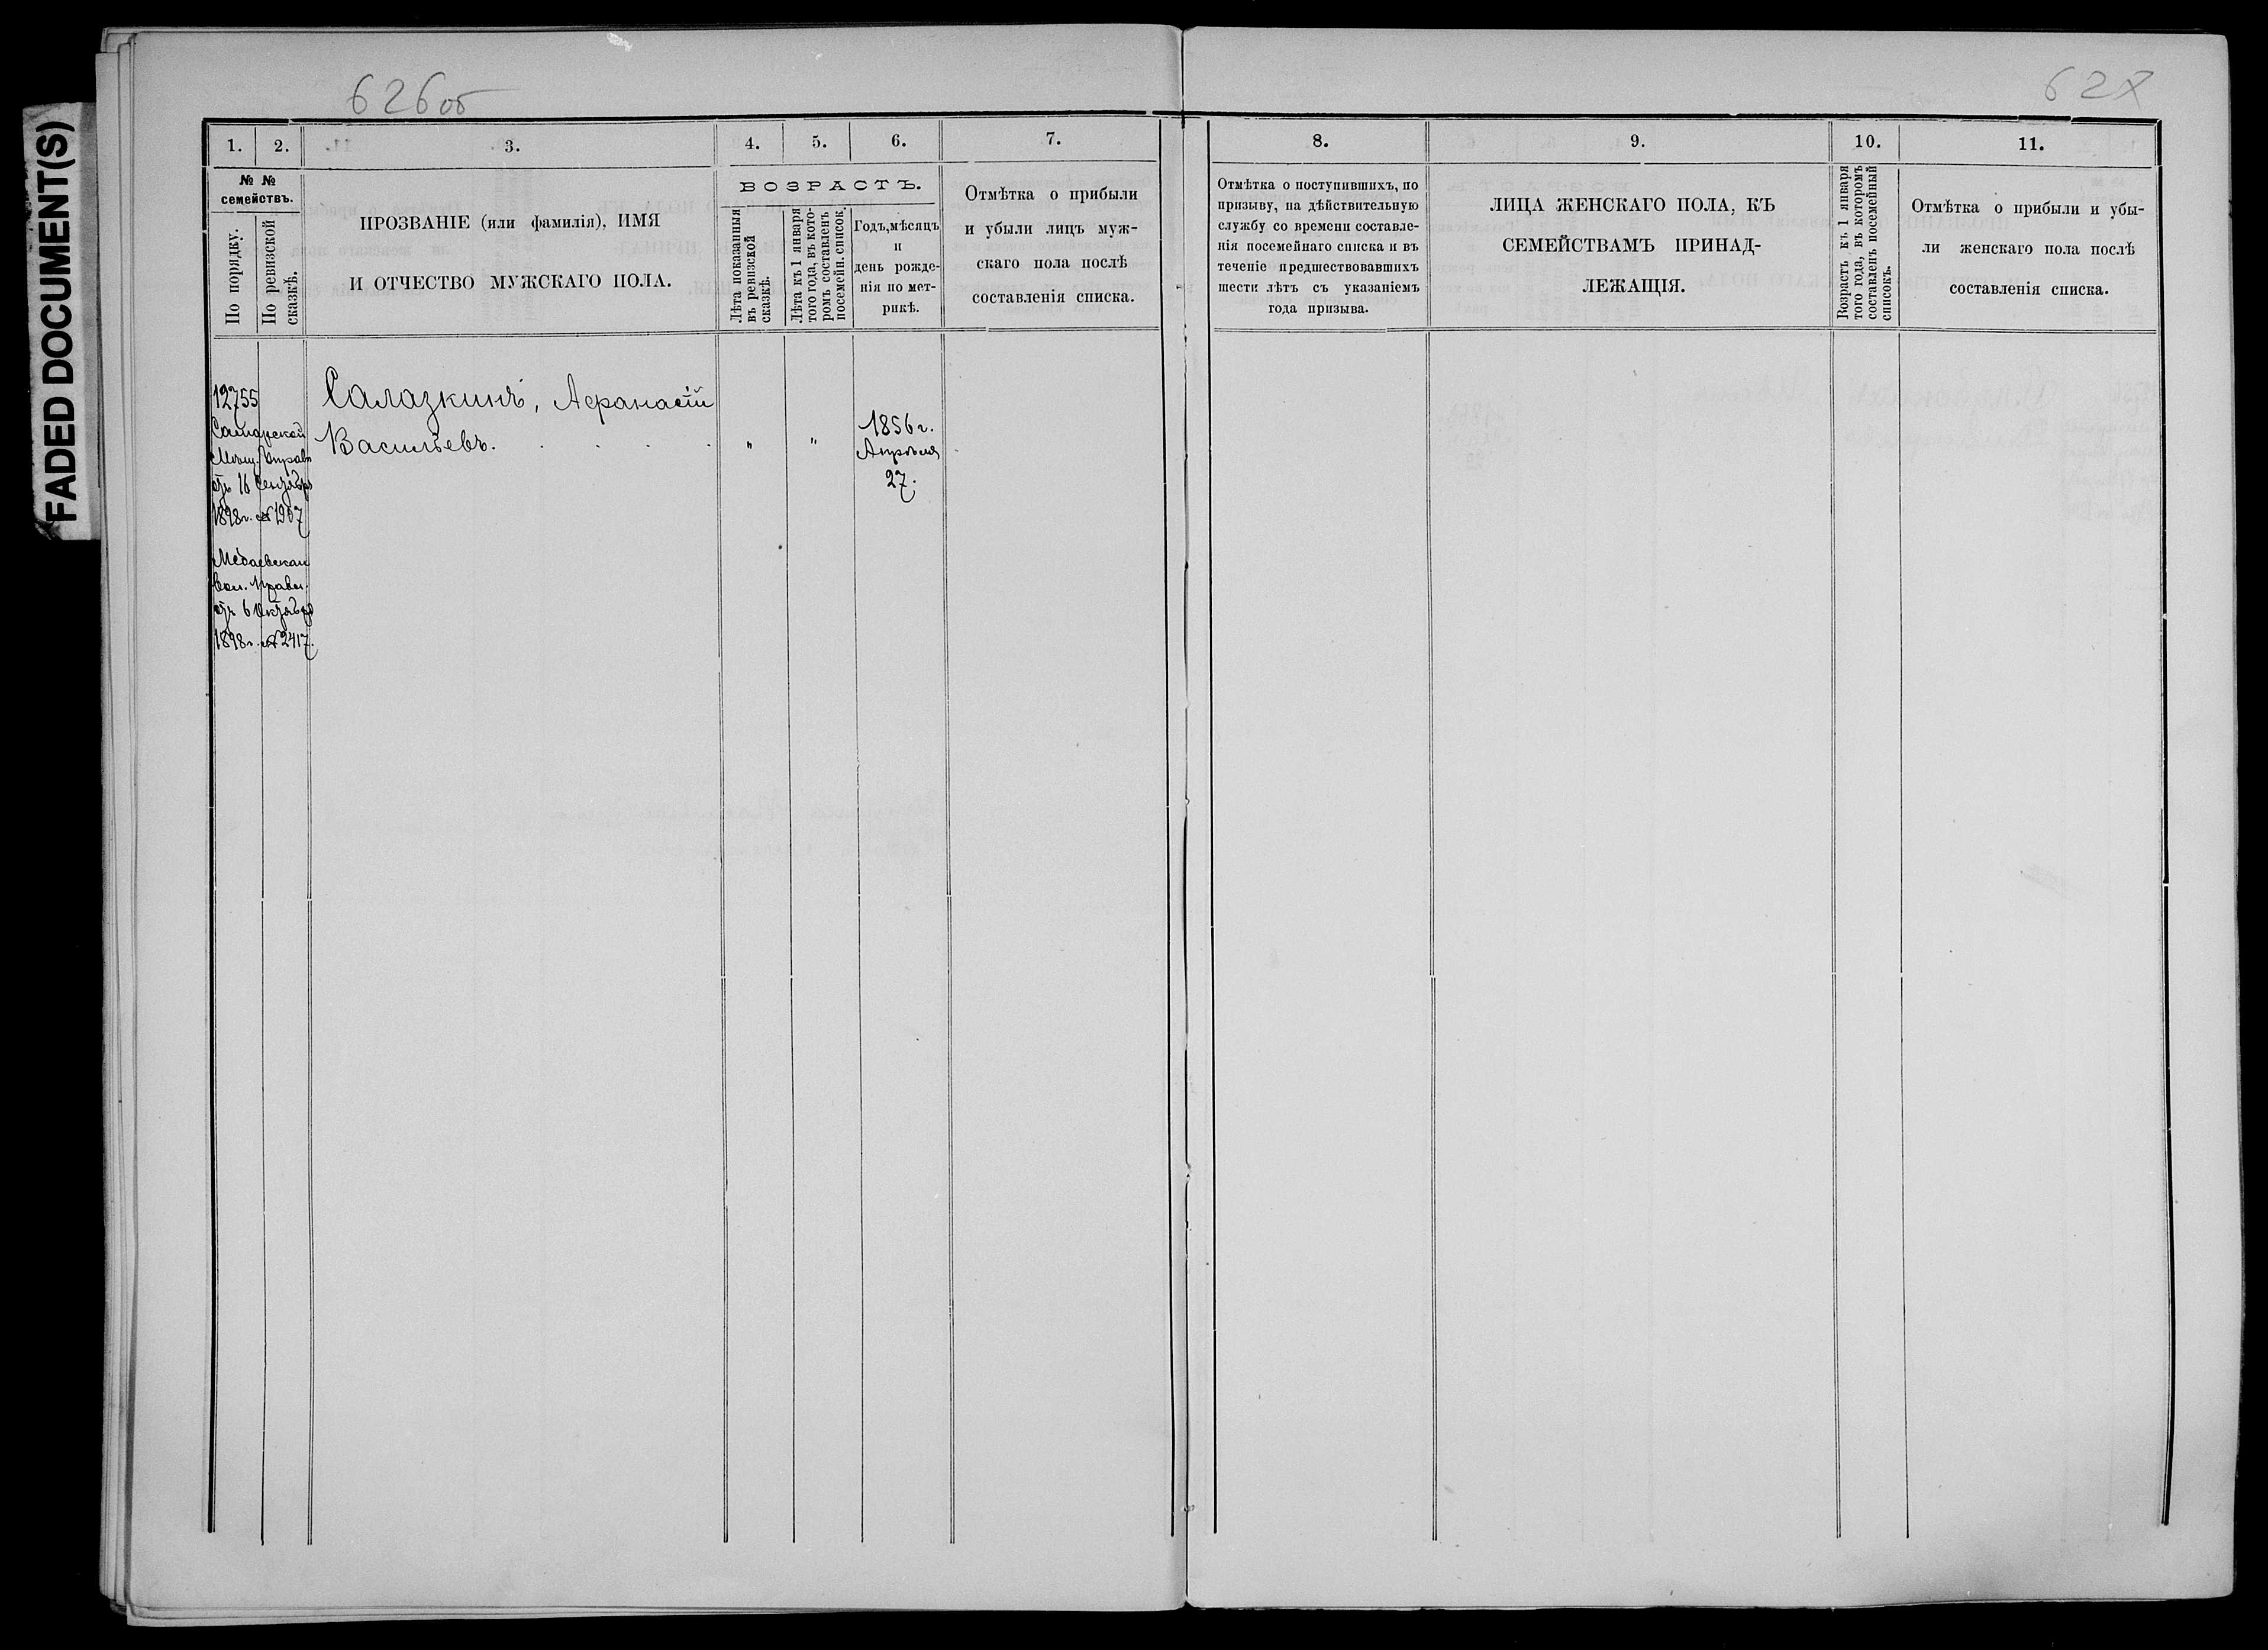 FADED DOCUMENT(S)
626об
1.
2.
3.
4.
5.
6.
7.
№ №
семействъ.
По порядку.
По ревизской
сказкѣ.
ПРОЗВАНІЕ (или фамилія), ИМЯ
И ОТЧЕСТВО МУЖСКАГО ПОЛА.
ВОЗРАСТЪ.
Лѣта показанныя
въ ревизской
сказкѣ.
Лѣта къ 1 января
того года, въ кото-
ромъ составленъ
посемейн. список.
Годъ, мѣсяцъ
и
день рожде-
нія по мет-
рикѣ.
Отмѣтка о прибыли
и убыли лицъ муж-
скаго пола послѣ
составленія списка.
12755
Самарской
Мѣщ. Управы
отъ 16 Сентября
1898 г. № 1907
Медаевскаго
Вол. Правл.
отъ 6 Октября
1898 г. № 2417.
Салазкинъ, Афанасій
Васильевъ. . . . .
"
"
1856 г.
Апрѣля
27.
627
8.
9.
10.
11.
Отмѣтка о поступившихъ, по
призыву, на дѣйствительную
службу со времени составле-
нія посемейнаго списка и въ
теченіе предшествовавшихъ
шести лѣтъ съ указаніемъ
года призыва.
ЛИЦА ЖЕНСКАГО ПОЛА, КЪ
СЕМЕЙСТВАМЪ ПРИНАД-
ЛЕЖАЩІЯ.
Возрастъ къ 1 января
того года, въ которомъ
составленъ посемейный
списокъ.
Отмѣтка о прибыли и убы-
ли женскаго пола послѣ
составленія списка.